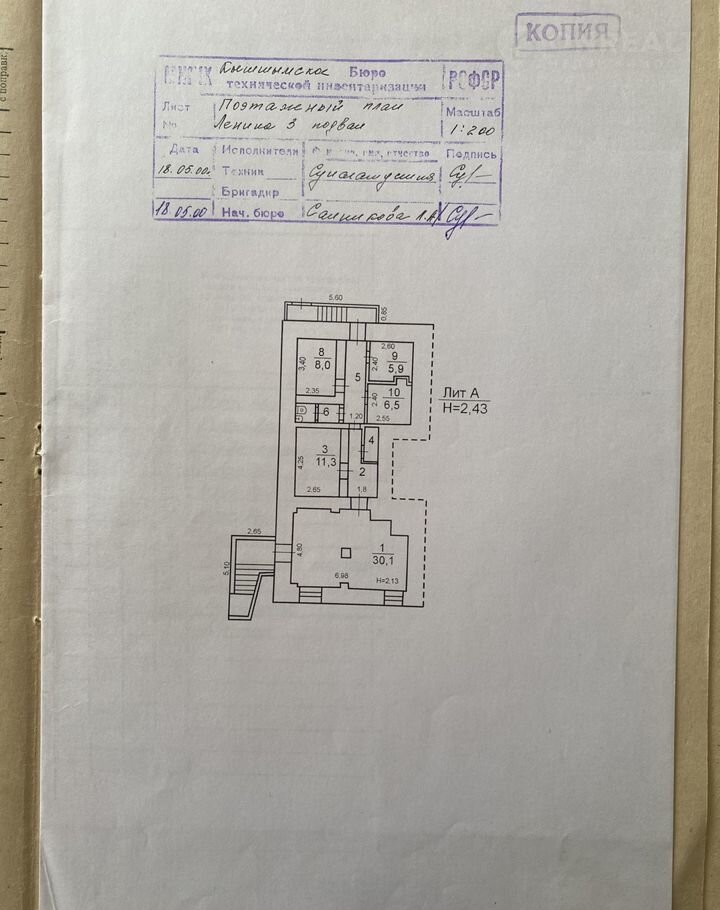 КОПИЯ
Кыштымское Бюро
технической инвентаризации
РСФСР
Лист Поэтажный план Масштаб
№ Ленина 3 подвал 1:200
Дата Исполнители Фамилия, имя, отчество Подпись
18.05.00г Техник
Бригадир
18.05.00 Нач. бюро Санникова Л.А.
5,60
0,85
2,60
3,40
8
8,0
2,40
9
5,9
5
2,35
2,40
10
6,5
Лит А
Н=2,43
6
1,20
2,55
4
3
11,3
4,25
2
2,65
1,8
2,65
4,80
1
30,1
5,10
6,98
Н=2,13